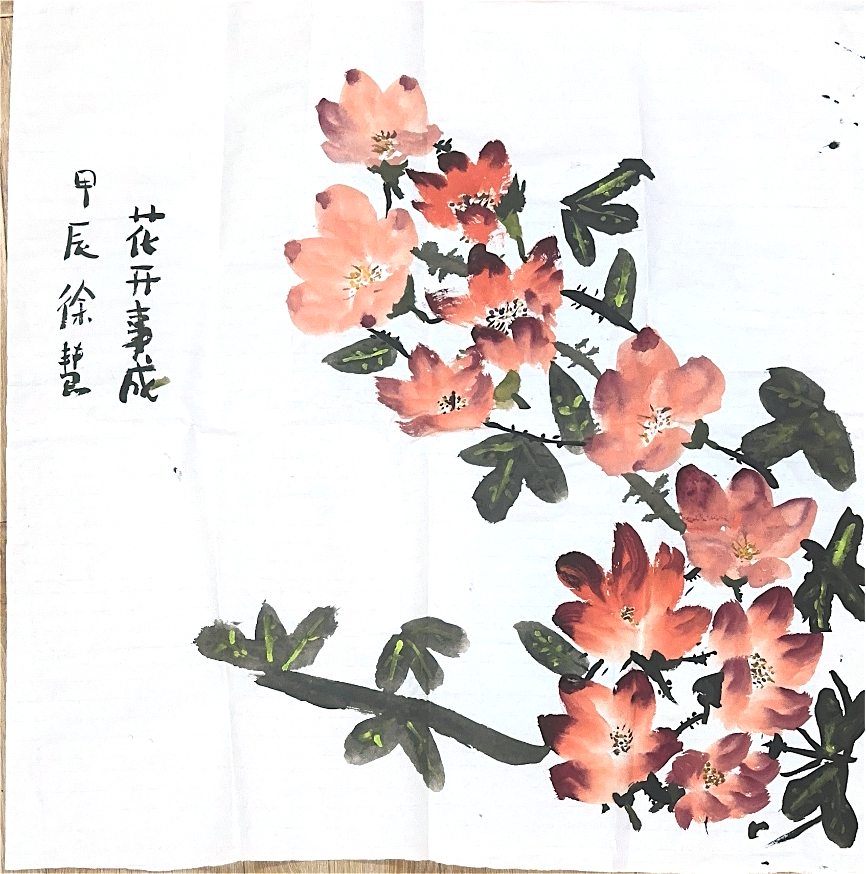 花开事成
甲辰徐慧